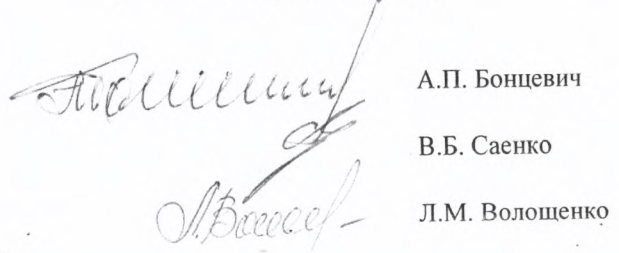 А.П. Бонцевич
В.Б. Саенко
Л.М. Волощенко